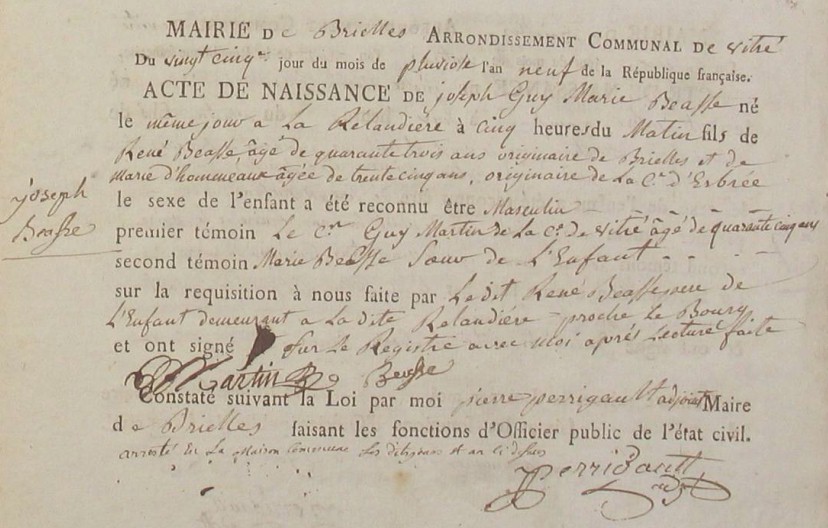 MAIRIE De Brielles ARRONDISSEMENT COMMUNAL DE vitré
Du vingt cinq.e jour du mois de pluviose l'an neuf de la République française.
ACTE DE NAISSANCE DE joseph Guy Marie Beasse né
le même jour a La Relandière à cinq heures du Matin fils de
René Beasse, âgé de quarante trois ans originaire de Brielles et de
Marie d'hommeaux âgée de trente cinq ans, originaire de La C.e d'Erbrée
joseph
Beasse
le sexe de l'enfant a été reconnu être Masculin
premier témoin Le C.en Guy Martin de La C.e de vitré âgé de quarante cinq ans
second témoin Marie Beasse Soeur de L'Enfant
sur la requisition à nous faite par Ledit René Beasse pere de
L'Enfant demeurant a La dite Relandière proche Le Bourg
et ont signé Sur Le Registre avec moi aprés Lecture faite
Martin R Beasse
Constaté suivant la Loi par moi pierre perrigault adjoint Maire
de Brielles faisant les fonctions d'Officier public de l'état civil.
arresté En La Maison Commune Les dits jours et an ci dessus
perrigault